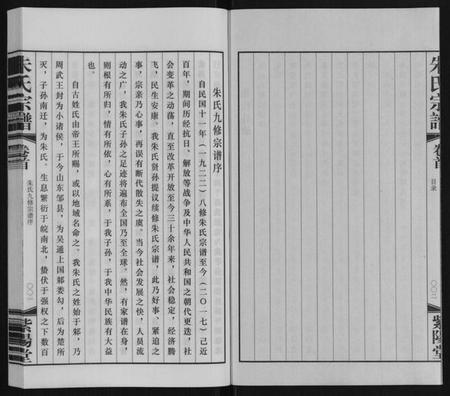 朱氏宗譜
卷首
目录
〇〇二
紫陽堂
朱氏九修宗谱序
自民国十一年（一九二二）八修朱氏宗谱至今（二〇一七）已近
百年，期间历经抗日、解放等战争及中华人民共和国之朝代更迭，社
会变革之动荡，直至改革开放至今三十余年来，社会稳定，经济腾
飞，民生安康。我朱氏贤孙提议续修朱氏宗谱，此乃好事、紧迫之
事，宗亲乃心事，再误有断代散失之虞。当今社会发展之快，人员流
动之广，我朱氏子孙之足迹将遍布全国乃至全球。然，有家谱在身，
则根有所归，情有所依，心有所系，于我子孙，于我中华民族有大益
也。
自古姓氏由帝王所赐，或以地域名命之。我朱氏之姓始于邾，乃
周武王封为小诸侯，于今山东邹县，为吴通上国邾娄勾，后为楚所
灭，子孙南迁，为朱氏。生息繁衍于皖南北，蛰伏于强权之下数百
朱氏宗譜
卷首
朱氏九修宗谱序
〇〇一
紫陽堂